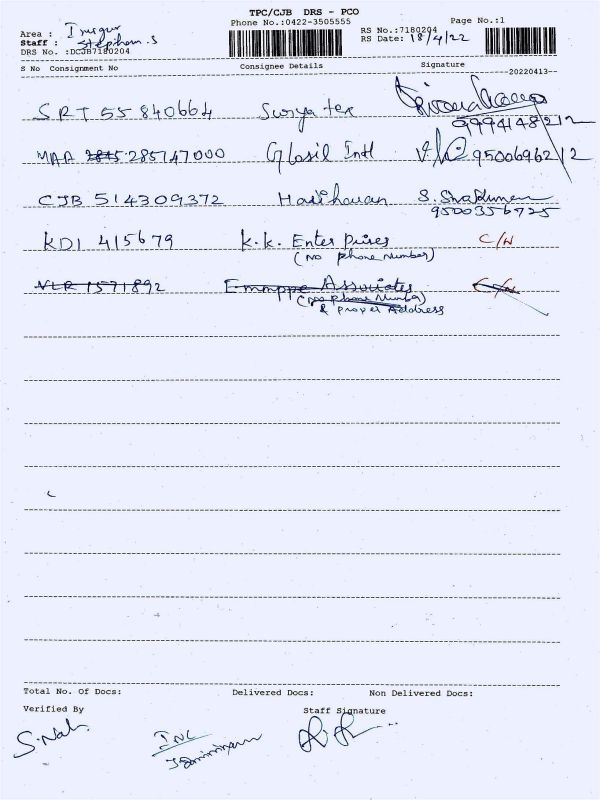 TPC/CJB DRS - PCO
Phone No.:0422-3505555
Page No.:1
Area : Irugur
RS No.:7180204
Staff : Stephen.S
RS Date: 18/4/22
DRS No. :DCJB7180204
S No Consignment No Consignee Details Signature
--20220413--
SRT 55840664 Surya tex
9994148212
MAA 2845 285747000 Glosil Intl 9500696212
CJB 514309372 Haribhavan
9500356725
KDI 415679 K.K. Enterprises C/N
(no phone number)
VLR 1571892 Emmppe Associates C/N
(no phone number)
& proper Address
Total No. Of Docs: Delivered Docs: Non Delivered Docs:
Verified By Staff Signature